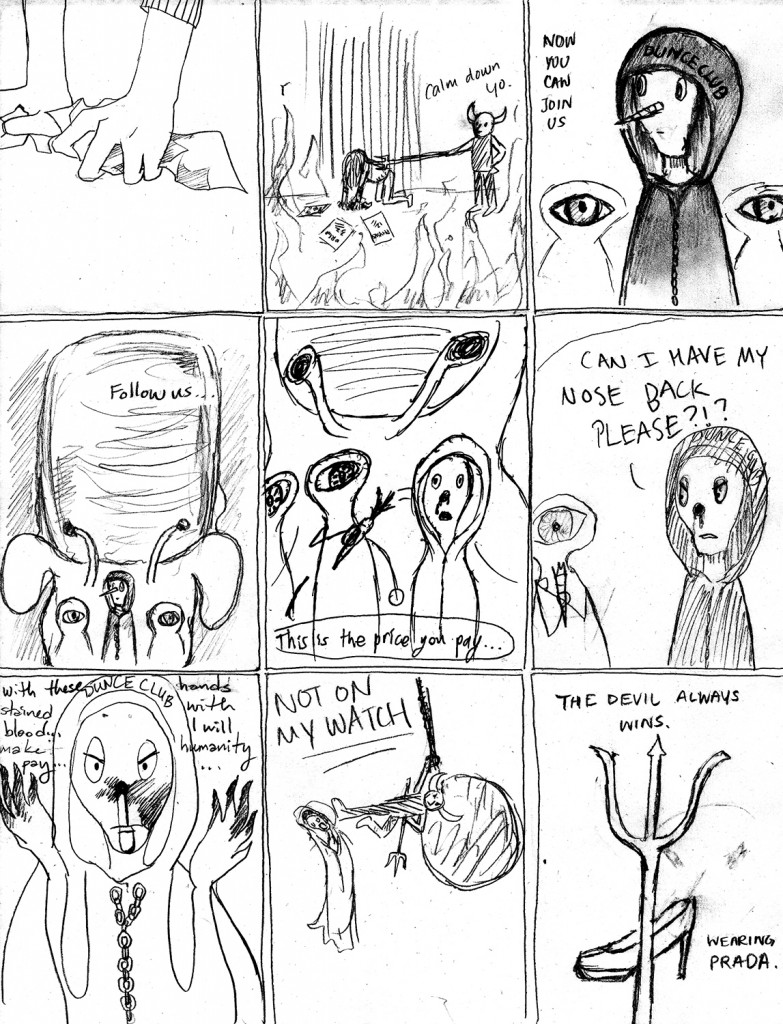 calm down
yo.
NOW
YOU
CAN
JOIN
US
DUNCE CLUB
Follow us...
This is the price you pay...
CAN I HAVE MY
NOSE BACK
PLEASE?!?
DUNCE
with these
stained
blood...
make
pay...
DUNCE CLUB
hands
with
I will
humanity
...
NOT ON
MY WATCH
THE DEVIL ALWAYS
WINS.
WEARING
PRADA.